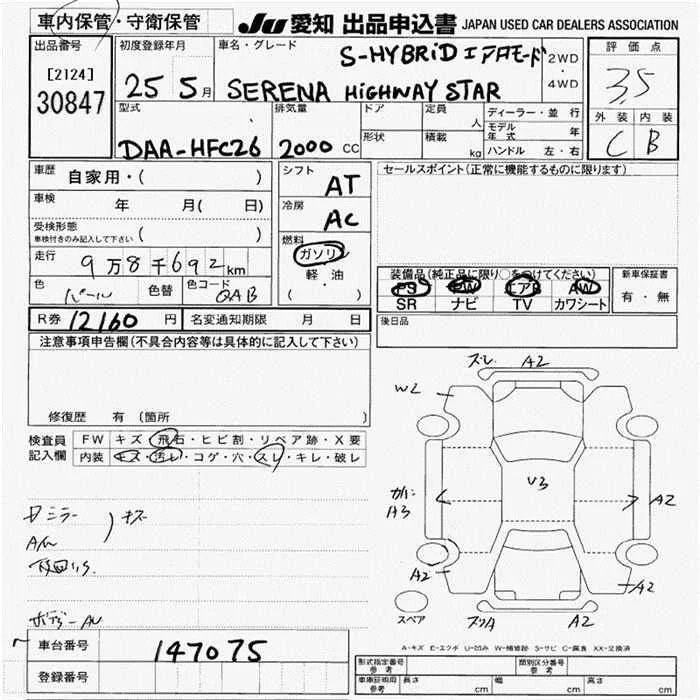 車内保管・守衛保管
JU 愛知 出品申込書 JAPAN USED CAR DEALERS ASSOCIATION
出品番号
[2124]
30847
初度登録年月
25 5月
車名・グレード
S-HYBRiD エアロモード
SERENA HiGHWAY STAR
2WD
・
4WD
評価点
3.5
外装 内装
C B
型式
DAA-HFC26
排気量
2000 CC
ドア
形状
定員
人
積載
kg
ディーラー・並行
モデル年式 年
ハンドル 左・右
車歴 自家用・( )
車検 年 月( 日)
受検形態
車検付きのみ記入して下さい ( )
走行 9万8千692km
色 パール 色替 色コード QAB
R券 12160円 名変通知期限 月 日
シフト
AT
冷房
AC
燃料
ガソリン
軽・油
( )
セールスポイント(正常に機能するものに限ります)
装備品(純正品に限り○をつけてください)
PS PW エアB AW
SR ナビ TV カワシート
新車保証書
有・無
後日品
注意事項申告欄(不具合内容等は具体的に記入して下さい)
修復歴 有 〔箇所 〕
検査員記入欄
FW キズ・飛石・ヒビ割・リペア跡・X要
内装 キズ・汚レ・コゲ・穴・スレ・キレ・破レ
ミラー
キズ
ズレ A2
W2
U3
A3
A2
A2
A2
スリA A2
スペア
A-キズ E-エクボ U-凹み W-補修跡 S-サビ C-腐食 XX-交換済
車台番号 147075
登録番号
型式指定番号 参考
類別区分番号 参考
車庫証明用 参考 長さ cm 幅 cm 高さ cm